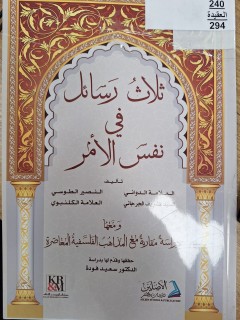 240
العقيدة
294
ثلاث رسائل
في
نفس الأمر
تأليف
العلامة الدواني النصير الطوسي
الجرجاني العلامة الكلنبوي
ومعها
دراسة مقارنة مع المذاهب الفلسفية المعاصرة
حققها وقدم لها بدراسة
الدكتور سعيد فودة
KR
الأصلين